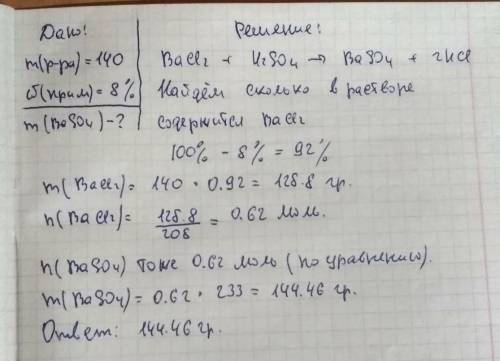 Дано:
Решение:
m(р-ра) = 140
ω(прим) = 8%
m(BaSO4) - ?
BaCl2 + H2SO4 → BaSO4 + 2HCl
Найдём сколько в растворе
содержится BaCl2
100% - 8% = 92%
m(BaCl2) = 140 · 0.92 = 128.8 гр.
n(BaCl2) = 128.8 / 208 = 0.62 моль.
n(BaSO4) тоже 0.62 моль (по уравнению).
m(BaSO4) = 0.62 · 233 = 144.46 гр.
Ответ: 144.46 гр.